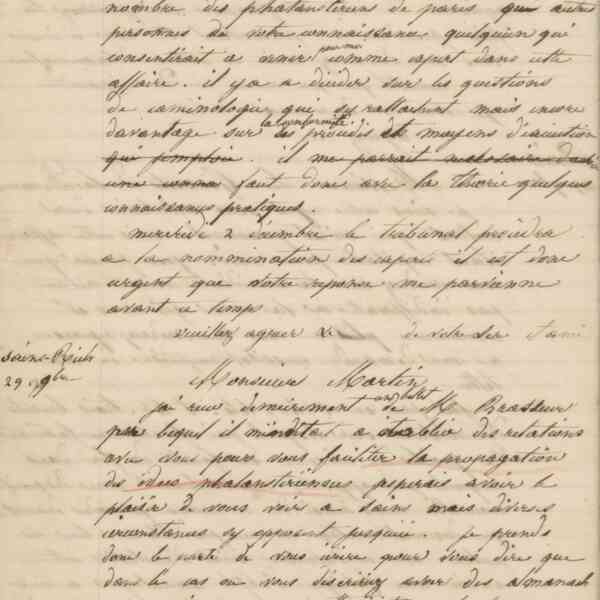 nombre des phalanstériens de paris que autres
personnes de votre connaissance quelqu'un qui
pour moi
consentirait a venir comme expert dans cette
affaire. il y a a décider sur les questions
de caminologie qui s'y rattachent mais encore
la conformité
davantage sur les procédés et moyens d'exécution
qui j'emploie. il me parrait nécessaire dans
une conna faut donc avec la théorie quelques
connaissances pratiques.
mercredi 2 décembre le tribunal procédra
a la nommination des experts il est donc
urgent que votre reponse me parvienne
avant ce temps
veuillez agréer &c de votre ami
Sains-Rich
29 9bre
Monsieur Martin
j'ai reçu dernierement de M. Brasseur
par lequel il m'invitat a établir des relations
avec vous pour vous faciliter la propagation
des idées phalanstériennes j'esperais avoir le
plaisir de vous voir a sains mais diverses
circonstances s'y opposent jusqu'ici. je prends
donc le parti de vous écrire pour vous dire que
dans le cas ou vous désireriez avoir des almanach